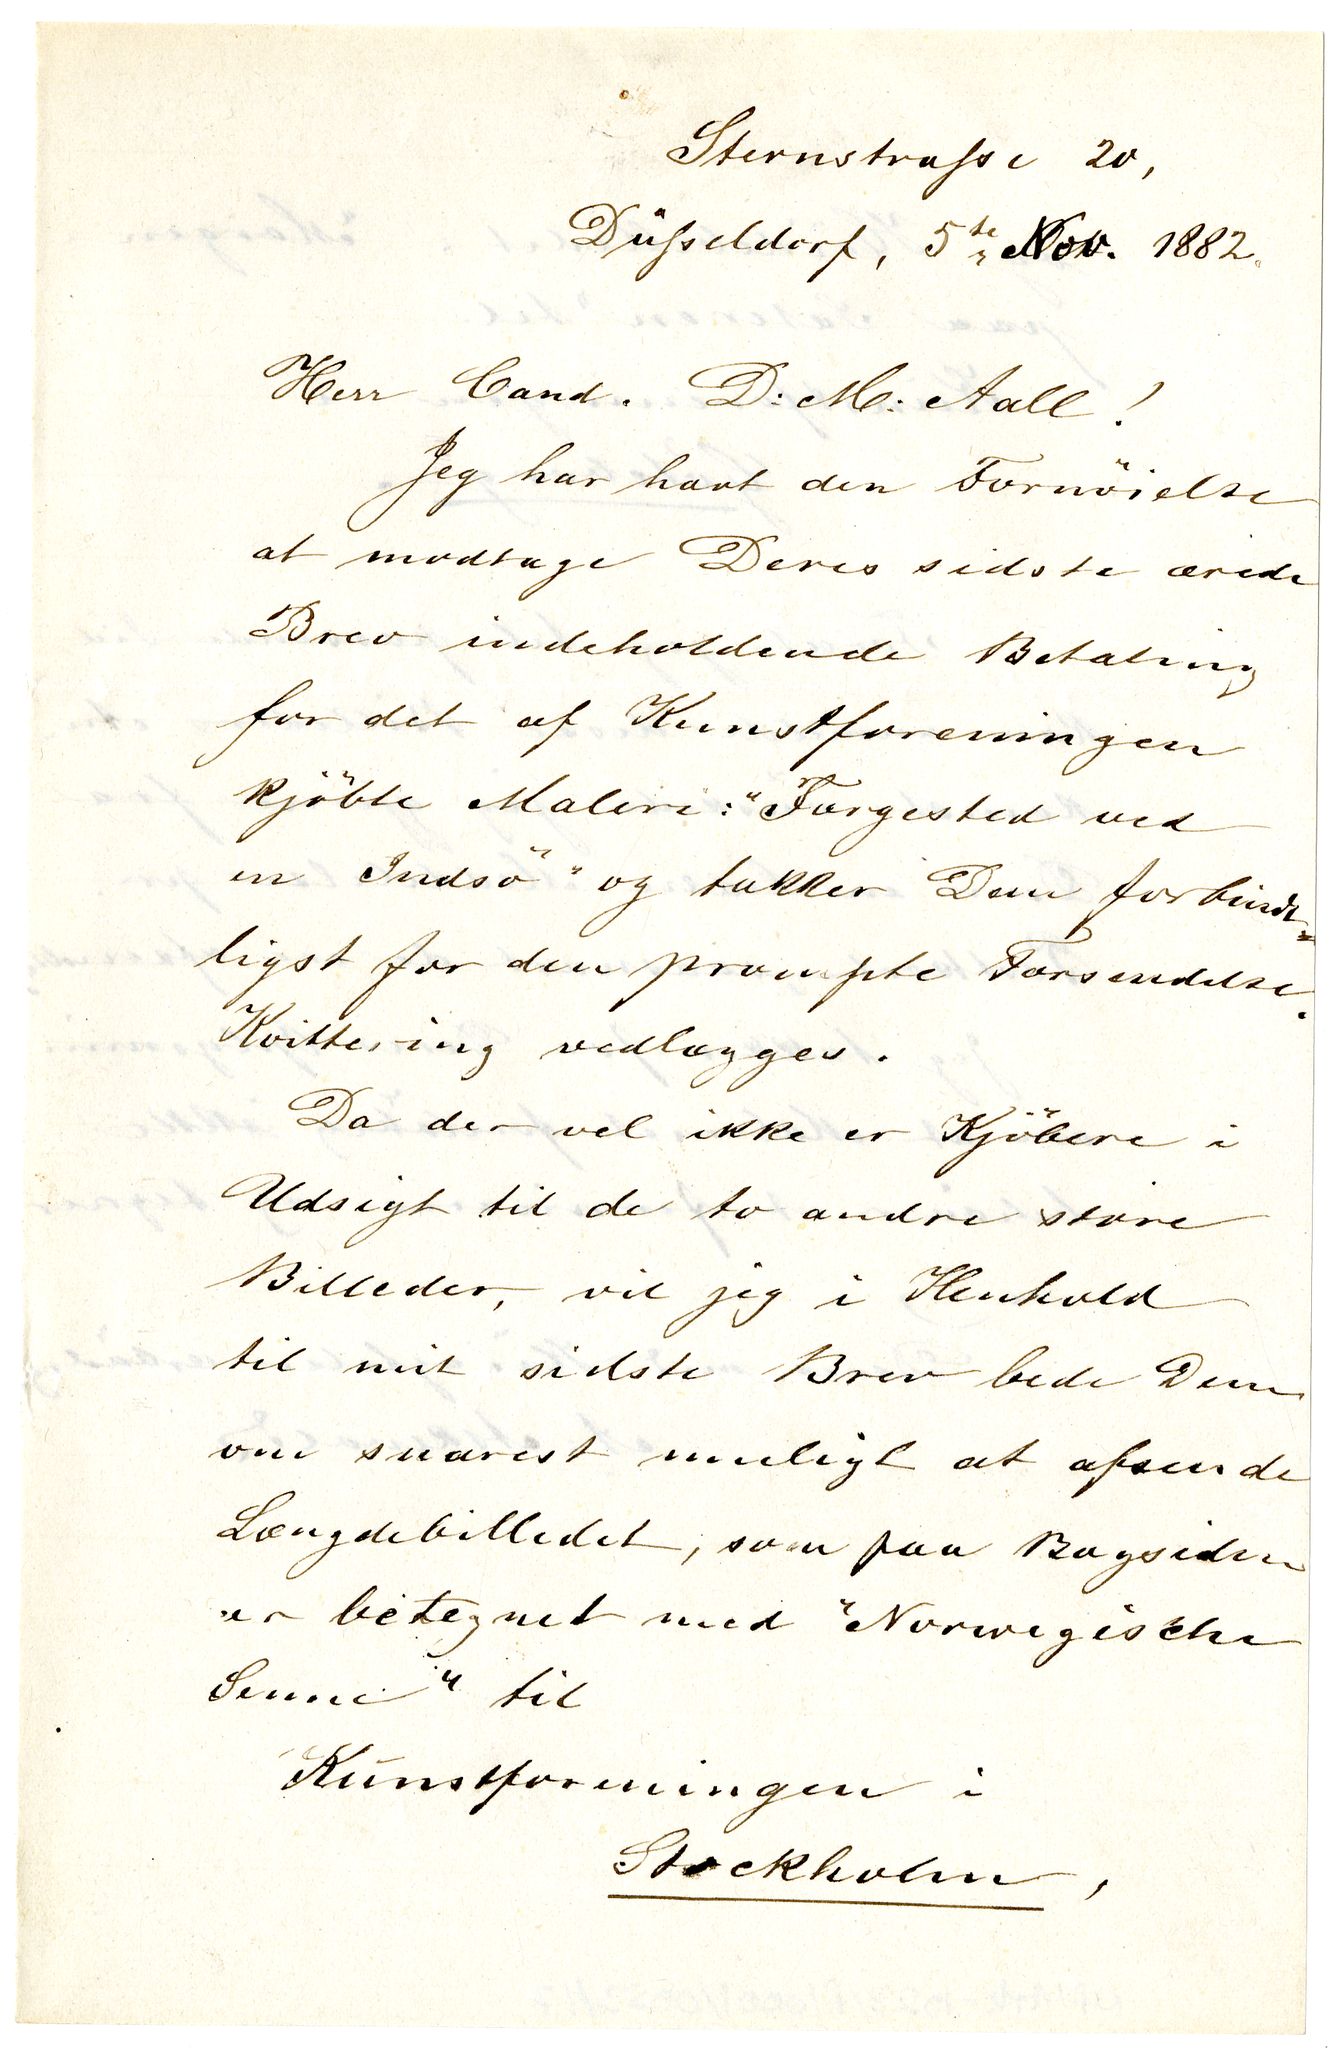 Sternstraße 20,
Düsseldorf, 5te Nov. 1882.
Herr Cand. D: M: Aall!
Jeg har havt den Fornöielse
at modtage Deres sidste ærede
Brev indeholdende Betaling
for det af Kunstforeningen
kjöbte Maleri: "Færgested ved
en Indsö" og takker Dem forbindt=
ligst for den prompte Forsendelse.
Kvittering vedlægges.
Da der vel ikke er Kjöbere i
Udsigt til de to andre store
Billeder, vil jeg i Henhold
til mit sidste Brev bede Dem
om snarest muligt at afsende
Længdebilledet, som paa Bagsiden
er betegnet med "Norwegische
" til
Kunstforeningen i
Stockholm,